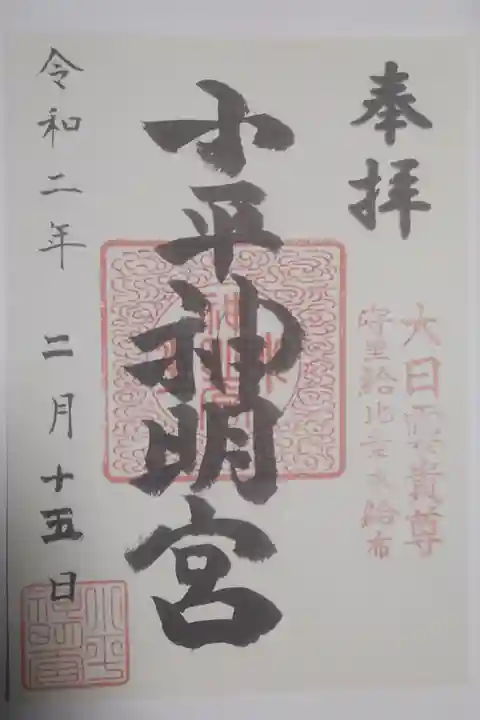 奉拝
大日孁貴尊
守里給比幸給布
小平神明宮
令和二年 二月十五日
小平神明宮